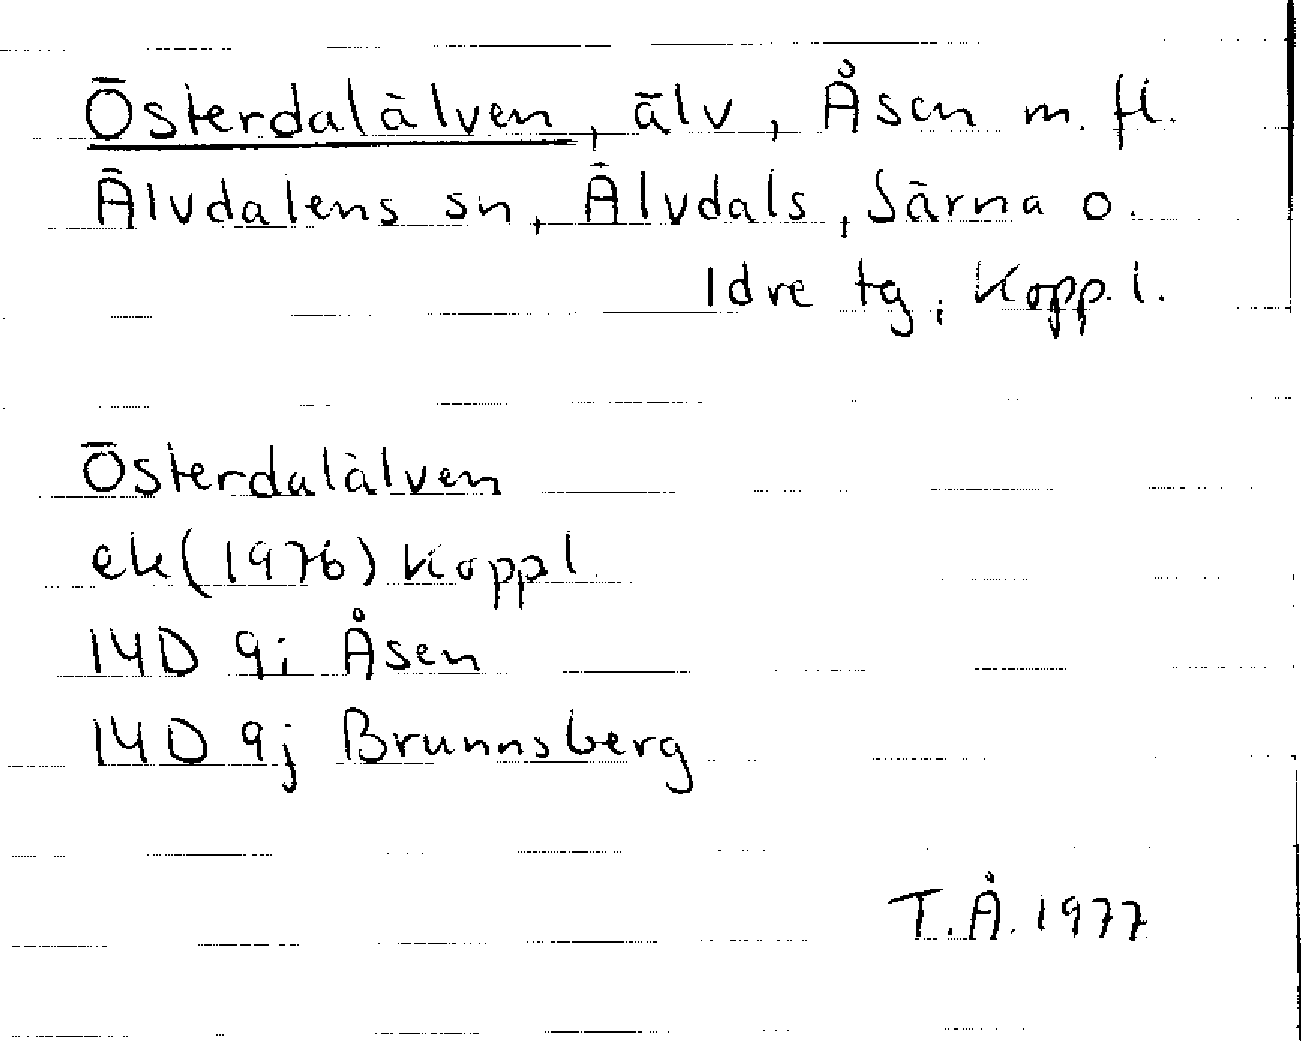 Österdalälven, älv, Åsen m. fl.
Älvdalens sn, Älvdals, Särna o.
Idre tg, Kopp. l.
Österdalälven
ek(1976) Koppl
14D 9i Åsen
14D 9j Brunnsberg
T.Å. 1977